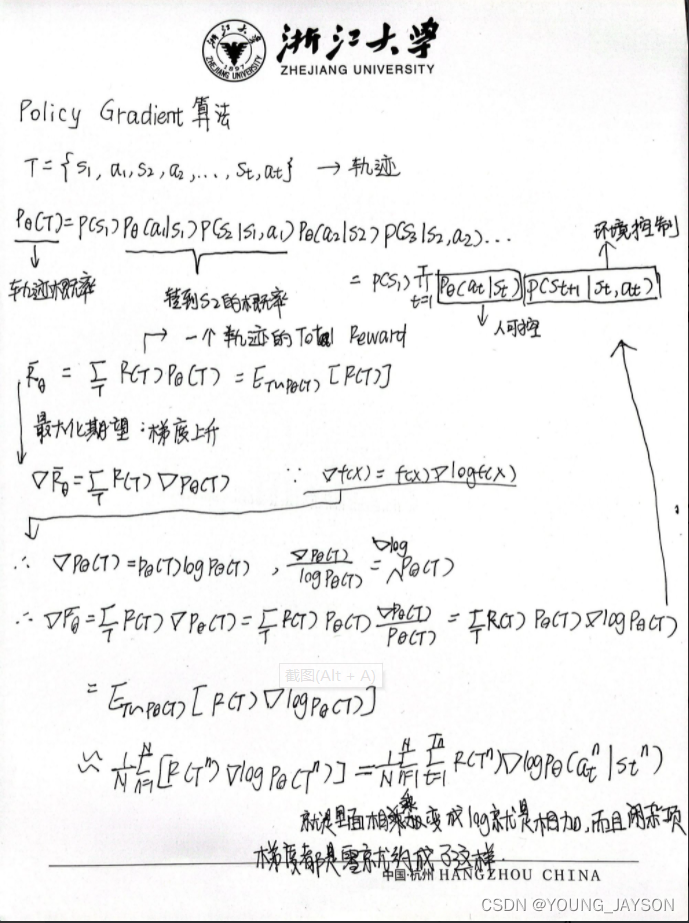 浙江大学
ZHEJIANG UNIVERSITY
Policy Gradient 算法
T = {s₁, a₁, s₂, a₂, ..., st, at} → 轨迹
Pθ(T) = P(s₁) Pθ(a₁|s₁) P(s₂|s₁,a₁) Pθ(a₂|s₂) P(s₃|s₂,a₂)...
环境控制
轨迹概率
转到S2的概率
= P(s₁) π t=1 Pθ(at|st) P(st+1|st,at)
人可控
→ 一个轨迹的Total Reward
R̄θ = Σ_T R(T) Pθ(T) = E_T~Pθ(T) [R(T)]
最大化期望:梯度上升
∇R̄θ = Σ_T R(T) ∇Pθ(T) ∵ ∇f(x) = f(x)∇log f(x)
∴ ∇Pθ(T) = Pθ(T) log Pθ(T) , ∇Pθ(T) / log Pθ(T) = ∇log Pθ(T)
∴ ∇R̄θ = Σ_T R(T) ∇Pθ(T) = Σ_T R(T) Pθ(T) ∇Pθ(T)/Pθ(T) = Σ_T R(T) Pθ(T) ∇log Pθ(T)
截图(Alt + A)
= E_T~Pθ(T) [R(T) ∇log Pθ(T)]
≈ 1/N Σ_{n=1}^{N} [R(Tⁿ) ∇log Pθ(Tⁿ)] = 1/N Σ_{n=1}^{N} Σ_{t=1}^{Tn} R(Tⁿ) ∇log Pθ(atⁿ|stⁿ)
就是里面相乘变成log就是相加,而且闲杂项
梯度都是零就约成了这样.
中国·杭州 HANGZHOU CHINA
CSDN @YOUNG_JAYSON